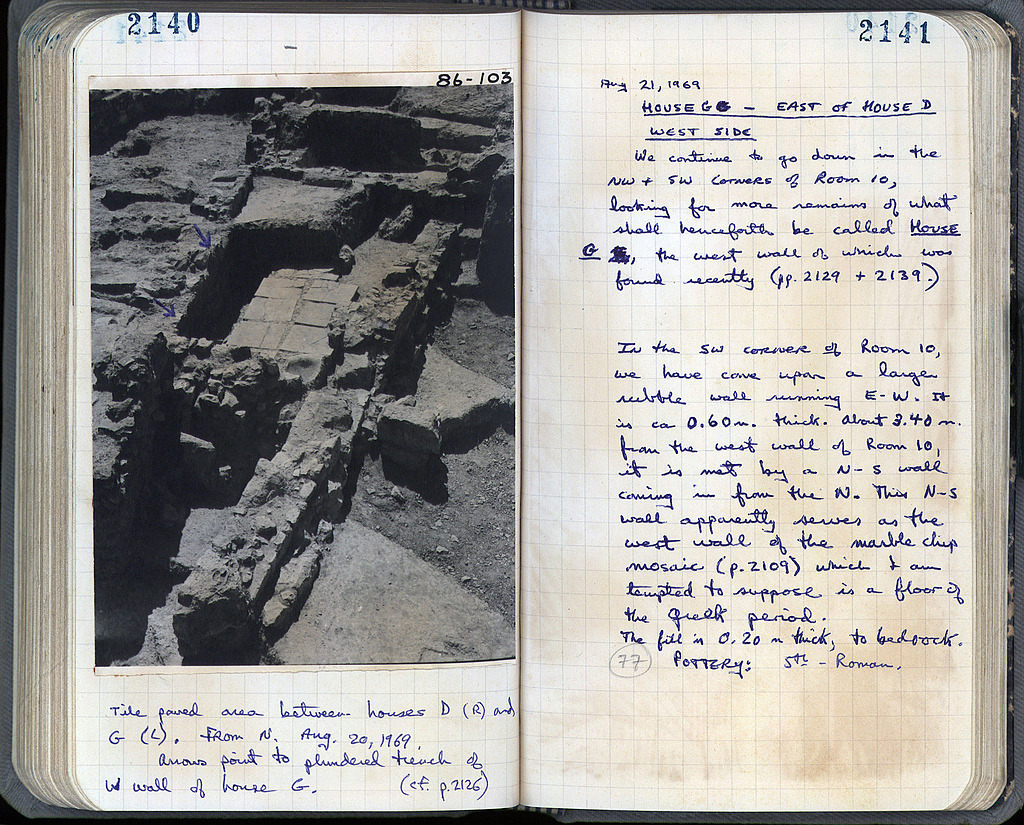 2140
86-103
Tile paved area between houses D (R) and
G (L). From N. Aug. 20, 1969.
arrows point to plundered trench of
W wall of house G. (cf. p.2126)
2141
Aug 21, 1969
HOUSE G - EAST OF HOUSE D
WEST SIDE
We continue to go down in the
NW + SW corners of Room 10,
looking for more remains of what
shall henceforth be called HOUSE
G, the west wall of which was
found recently (pp. 2129 + 2139.)
In the SW corner of Room 10,
we have come upon a large
rubble wall running E-W. It
is ca 0.60 m. thick. About 3.40 m.
from the west wall of Room 10,
it is met by a N-S wall
coming in from the N. This N-S
wall apparently serves as the
west wall of the marble chip
mosaic (p.2109) which I am
tempted to suppose is a floor of
the Greek period.
The fill is 0.20 m thick, to bedrock.
77 POTTERY: 5th - Roman.